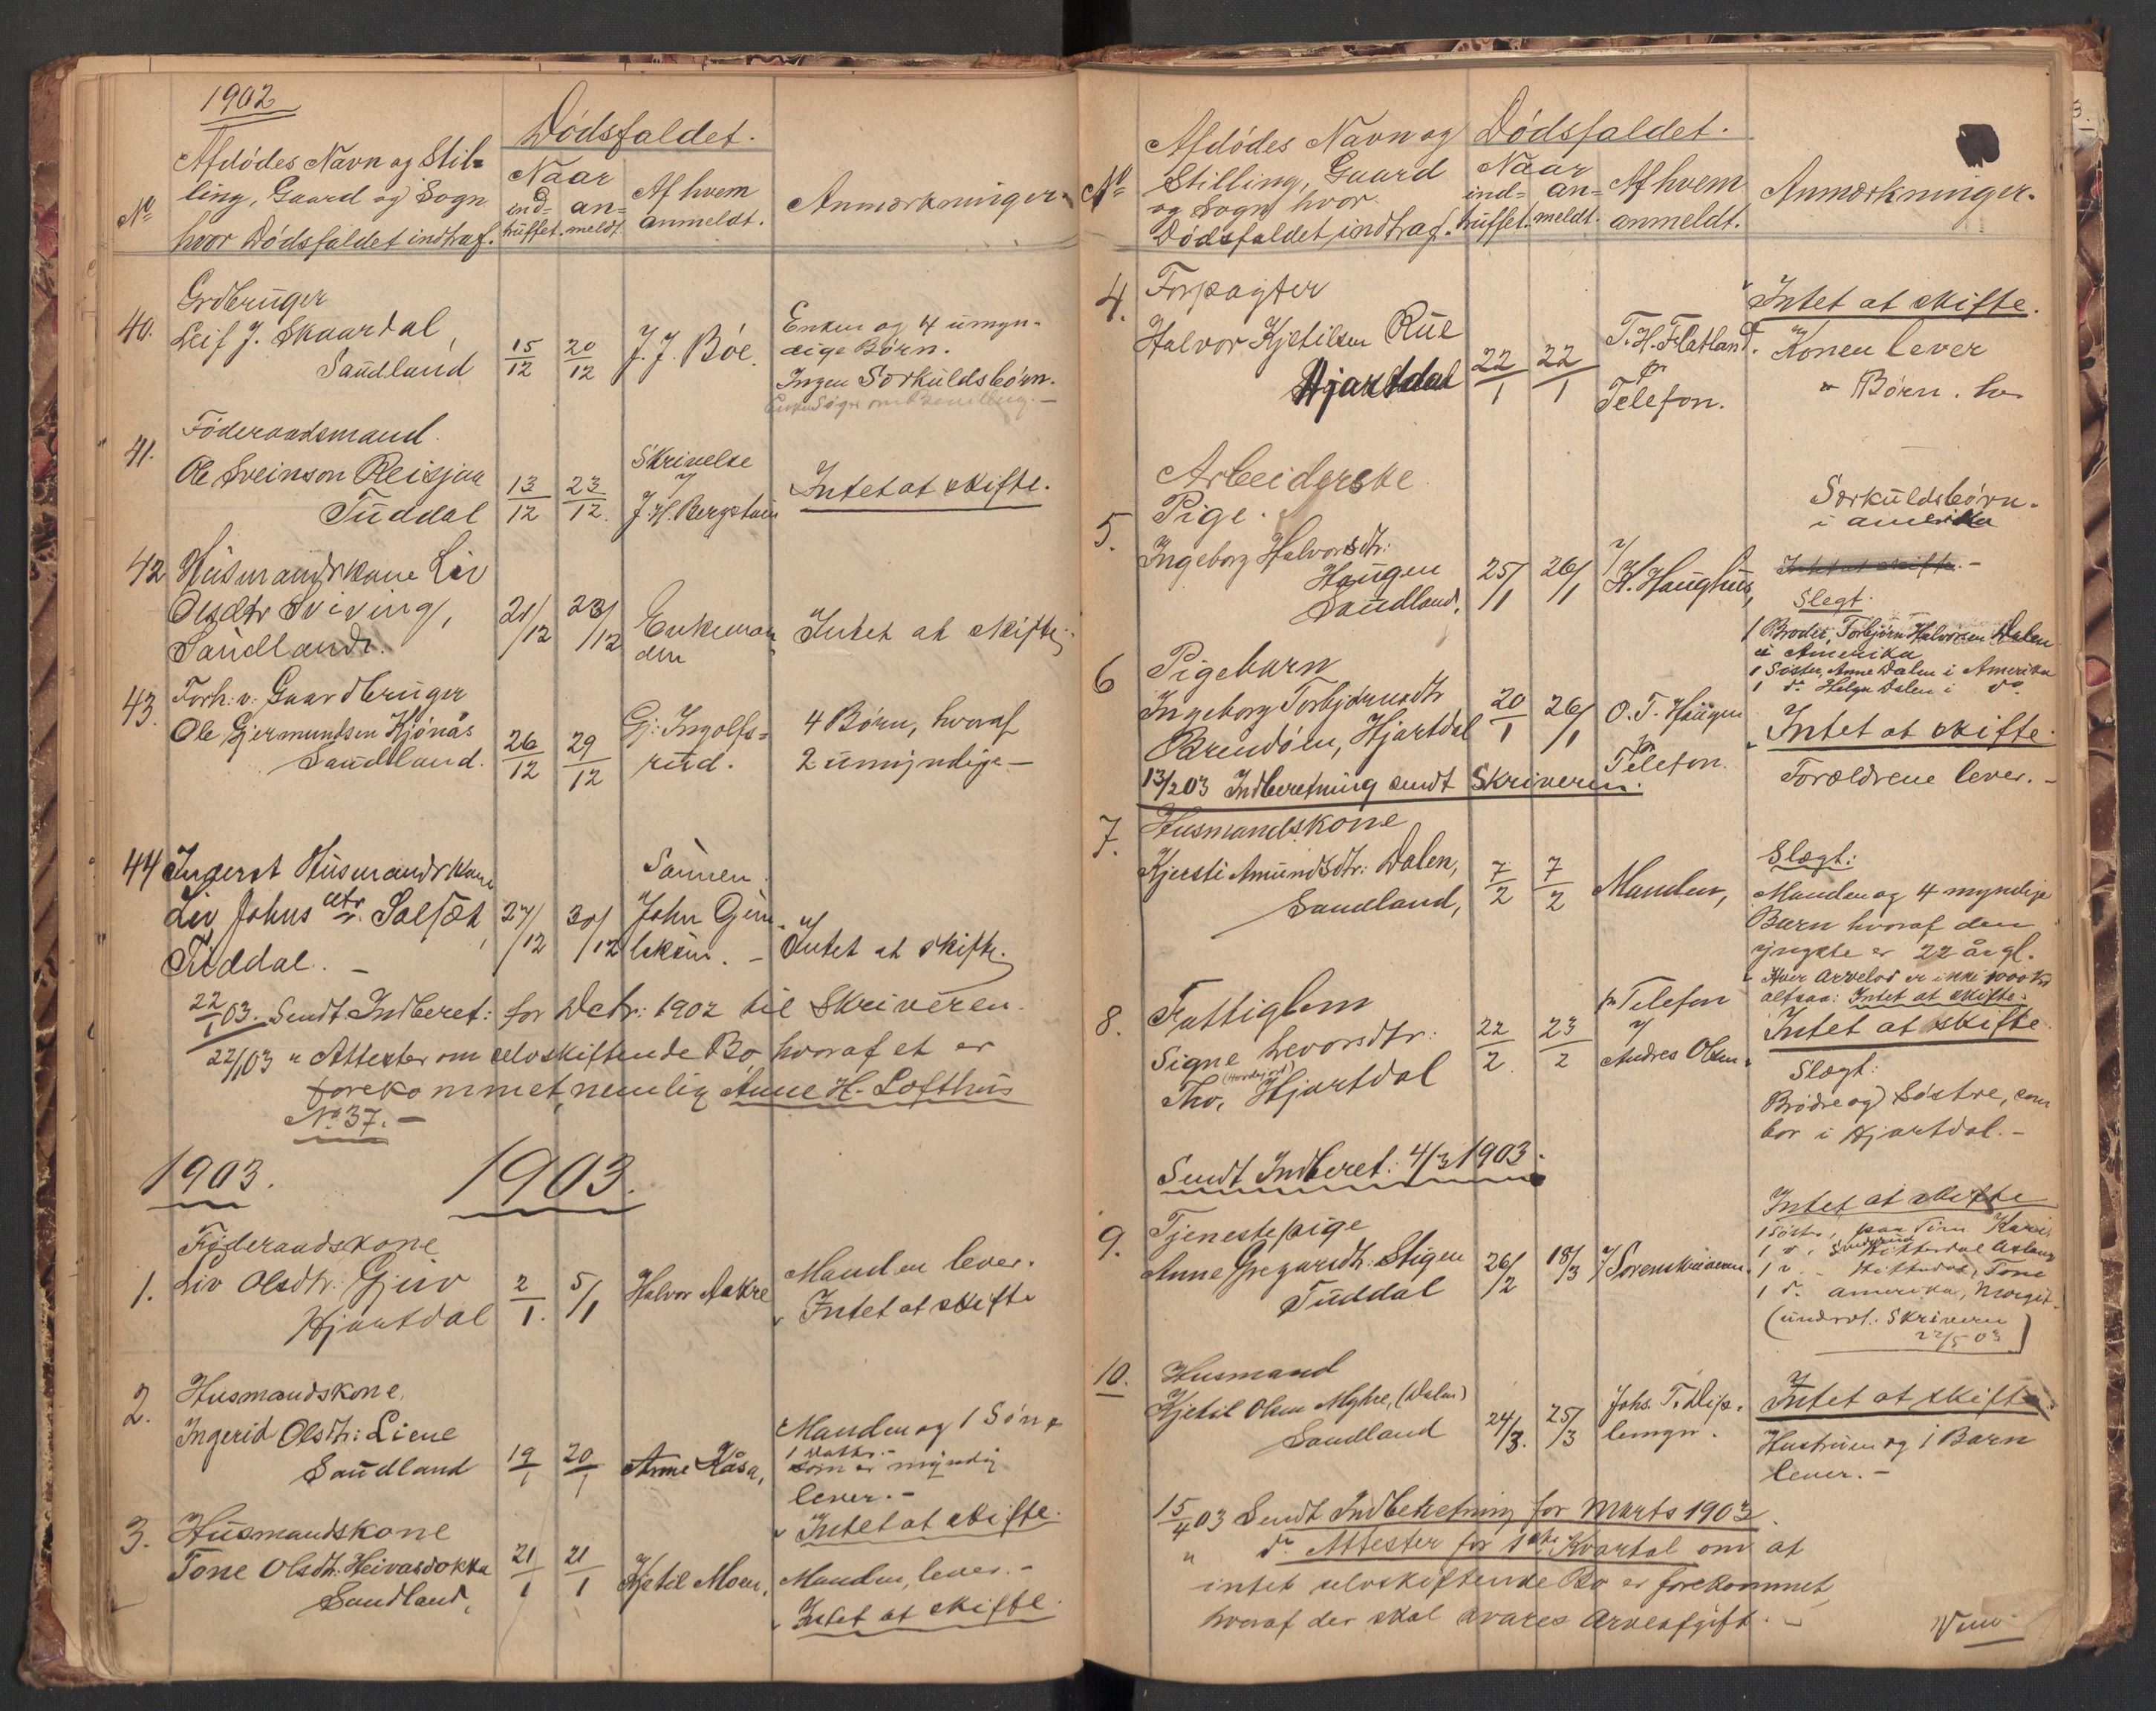 1902
Dødsfaldet.
No
Afdødes Navn og Stil-
ling, Gaard og Sogn
hvor Dødsfaldet indtraf.
Naar
ind- an-
truffet. meldt.
Af hvem
anmeldt.
Anmærkninger.
40.
Grdbruger
Leif J. Skaardal,
Saudland
15/12 20/12
J. J. Bøe.
Enken og 4 umyn-
dige Børn.
Ingen Særkuldsbørn.
41.
Føderaadsmand.
Ole Sveinson Reisjaa
Tuddal
13/12 23/12.
Skrivelse
f/
J. H. Bergstuen
Intet at skifte.
42
Husmandskone Liv
Olsdtr Sviving,
Saudland.
21/12 23/12
Enkeman
den
Intet at skifte.
43.
Forh. v. Gaardbruger
Ole Gjermundsen Kjønås
Saudland.
26/12 29/12
Gj. Ingolfs-
rud.
4 Børn, hvoraf
2 umyndige —
44
Inderst Husmandskone
Liv Johnsdtr. Solsæt,
Tuddal. —
27/12 30/12
Sønnen
John Gun-
leksen. —
Intet at skifte.
22/1 03. Sendt Indberet: for Dcbr: 1902 til Skriveren.
22/1 03 " Attester om selvskiftende Bo, hvoraf et er
forekommet, nemlig Anne H. Lofthus
No. 37. —
1903. 1903.
1.
Føderaadskone
Liv Olsdtr. Gjuv
Hjartdal
2/1. 5/1
Halvor Aakre
Manden lever.
Intet at skifte
2.
Husmandskone
Ingerid Olsdtr: Liene
Saudland
19/1 20/1
Anne Kåsa,
Manden og 1 Søn &
1 Datter. —
som er myndig
lever. —
Intet at skifte.
3.
Husmandskone
Tone Olsdtr. Heivasdokka
Saudland,
21/1 21/1
Kjetil Moen,
Manden, lever. —
Intet at skifte.
No
Afdødes Navn og
Stilling, Gaard
og Sogn hvor
Dødsfaldet indtraf.
Dødsfaldet.
Naar
ind- an-
truffet. meldt.
Af hvem
anmeldt.
Anmærkninger.
4.
Forpagter
Halvor Kjetilsen Rue
Hjartdal
22/1 22/1
T. H. Flatland.
pr
Telefon.
Intet at skifte.
Konen lever
" Børn.
5.
Arbeiderske
Pige.
Ingeborg Halvorsdtr:
Haugen
Saudland,
25/1 26/1
f/
K. Haughus,
Særkuldsbørn.
i amerika
Intet at skifte. —
Slegt.
1 Broder, Torbjørn Halvorsen Dalen
i Amerika
1 Søster, Anne Dalen i Amerika
1 do Helge Dalen i do
6
Pigebarn
Ingeborg Torbjørnsdtr
Brendøen, Hjartdal
20/1 26/1
O. T. Haugen
pr
Telefon.
Intet at skifte.
Forældrene lever. —
13/2 03 Indberetning sendt Skriveren.
7.
Husmandskone
Kjersti Amundsdtr: Dalen,
Saudland,
7/2 7/2
Manden,
Slægt:
Manden og 4 myndige
Barn hvoraf den
yngste er 22 år gl.
Hver Arvelod er ikke 1000 Kr
altsaa: Intet at skifte.
8.
Fattiglem
Signe Levorsdtr:
Tho, Hjartdal
22/2. 23/2
pr Telefon
f/
Andres Olsen.
Intet at skifte.
Slægt:
Brødre og Søstre, som
bor i Hjartdal. —
Sendt Indberet: 4/3 1903.
9.
Tjenestepige
Anne Gregarsdtr. Stigen
Tuddal
26/2 18/3
f/ Sorenskriveren.
Intet at skifte
1 Søster, paa Tinn Kari
1 " Hitterdal Aslaug
1 " — Hitterdal, Tone
1 do. amerika, Margit.
(underet. Skriveren
22/5 03)
10.
Husmand
Kjetil Olsen Myhre, (Dalen)
Saudland
24/3. 25/3
Johs. T. Dip-
lemyr.
Intet at skifte.
Hustruen og 1 Barn
lever. —
15/4 03 Sendt Indberetning for Marts 1903.
" do Attester for 1ste Kvartal om at
intet selvskiftende Bo er forekommet,
hvoraf der skal svares Arveafgift. —